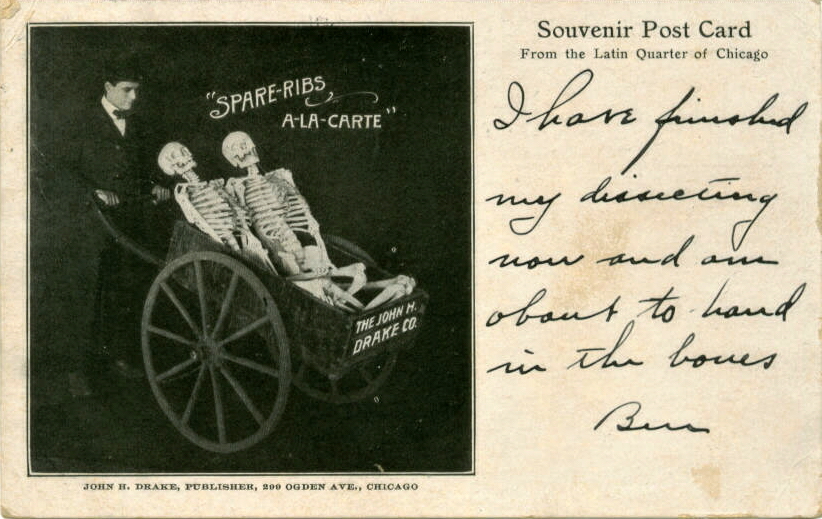 Souvenir Post Card
From the Latin Quarter of Chicago
"SPARE-RIBS
A-LA-CARTE"
THE JOHN H.
DRAKE CO.
JOHN H. DRAKE, PUBLISHER, 299 OGDEN AVE., CHICAGO
I have finished
my dissecting
now and am
about to hand
in the bones
Ben